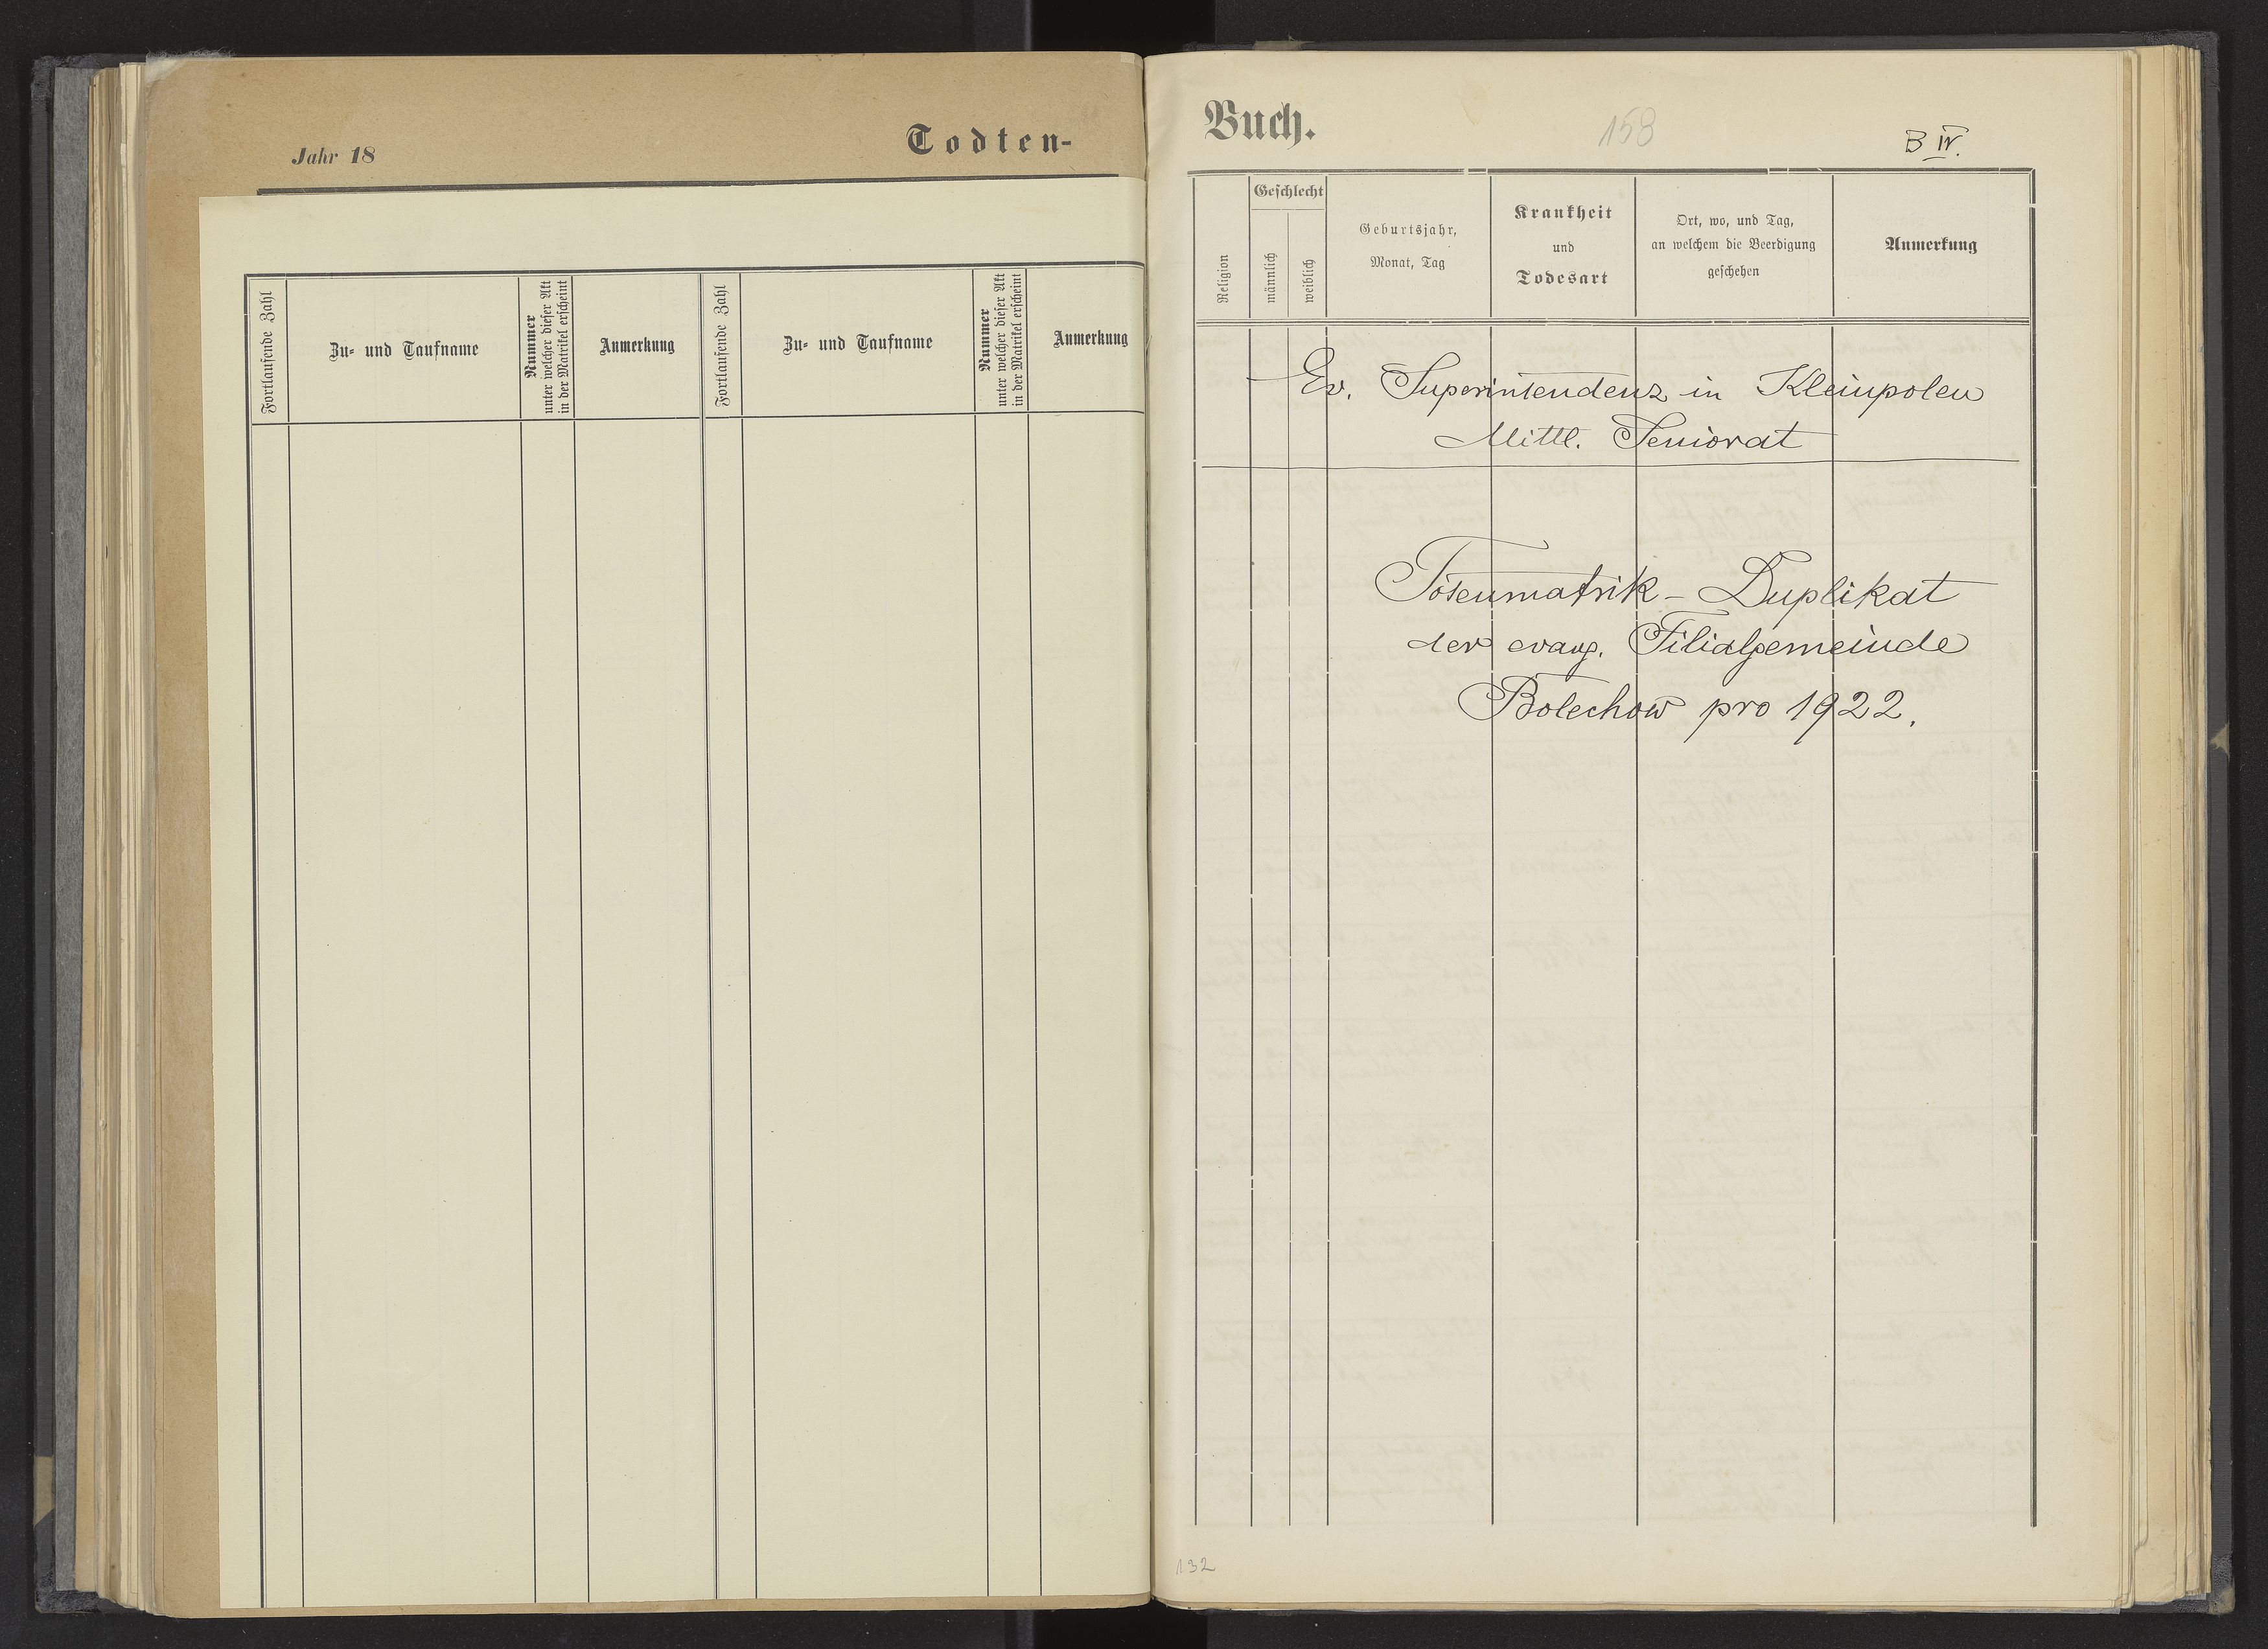 Jahr 18
Todten-
Fortlaufende Zahl
Zu- und Taufname
Nummer
unter welcher dieser Akt
in der Matrikel erscheint
Anmerkung
Fortlaufende Zahl
Zu- und Taufname
Nummer
unter welcher dieser Akt
in der Matrikel erscheint
Anmerkung
Buch.
158
B IV.
Religion
Geschlecht
männlich
weiblich
Geburtsjahr,
Monat, Tag
Krankheit
und
Todesart
Ort, wo, und Tag,
an welchem die Beerdigung
geschehen
Anmerkung
Ev. Superintendenz in Kleinpolen
Mittl. Seniorat
Totenmatrik - Duplikat
der evang. Filialgemeinde
Bolechow pro 1922.
132